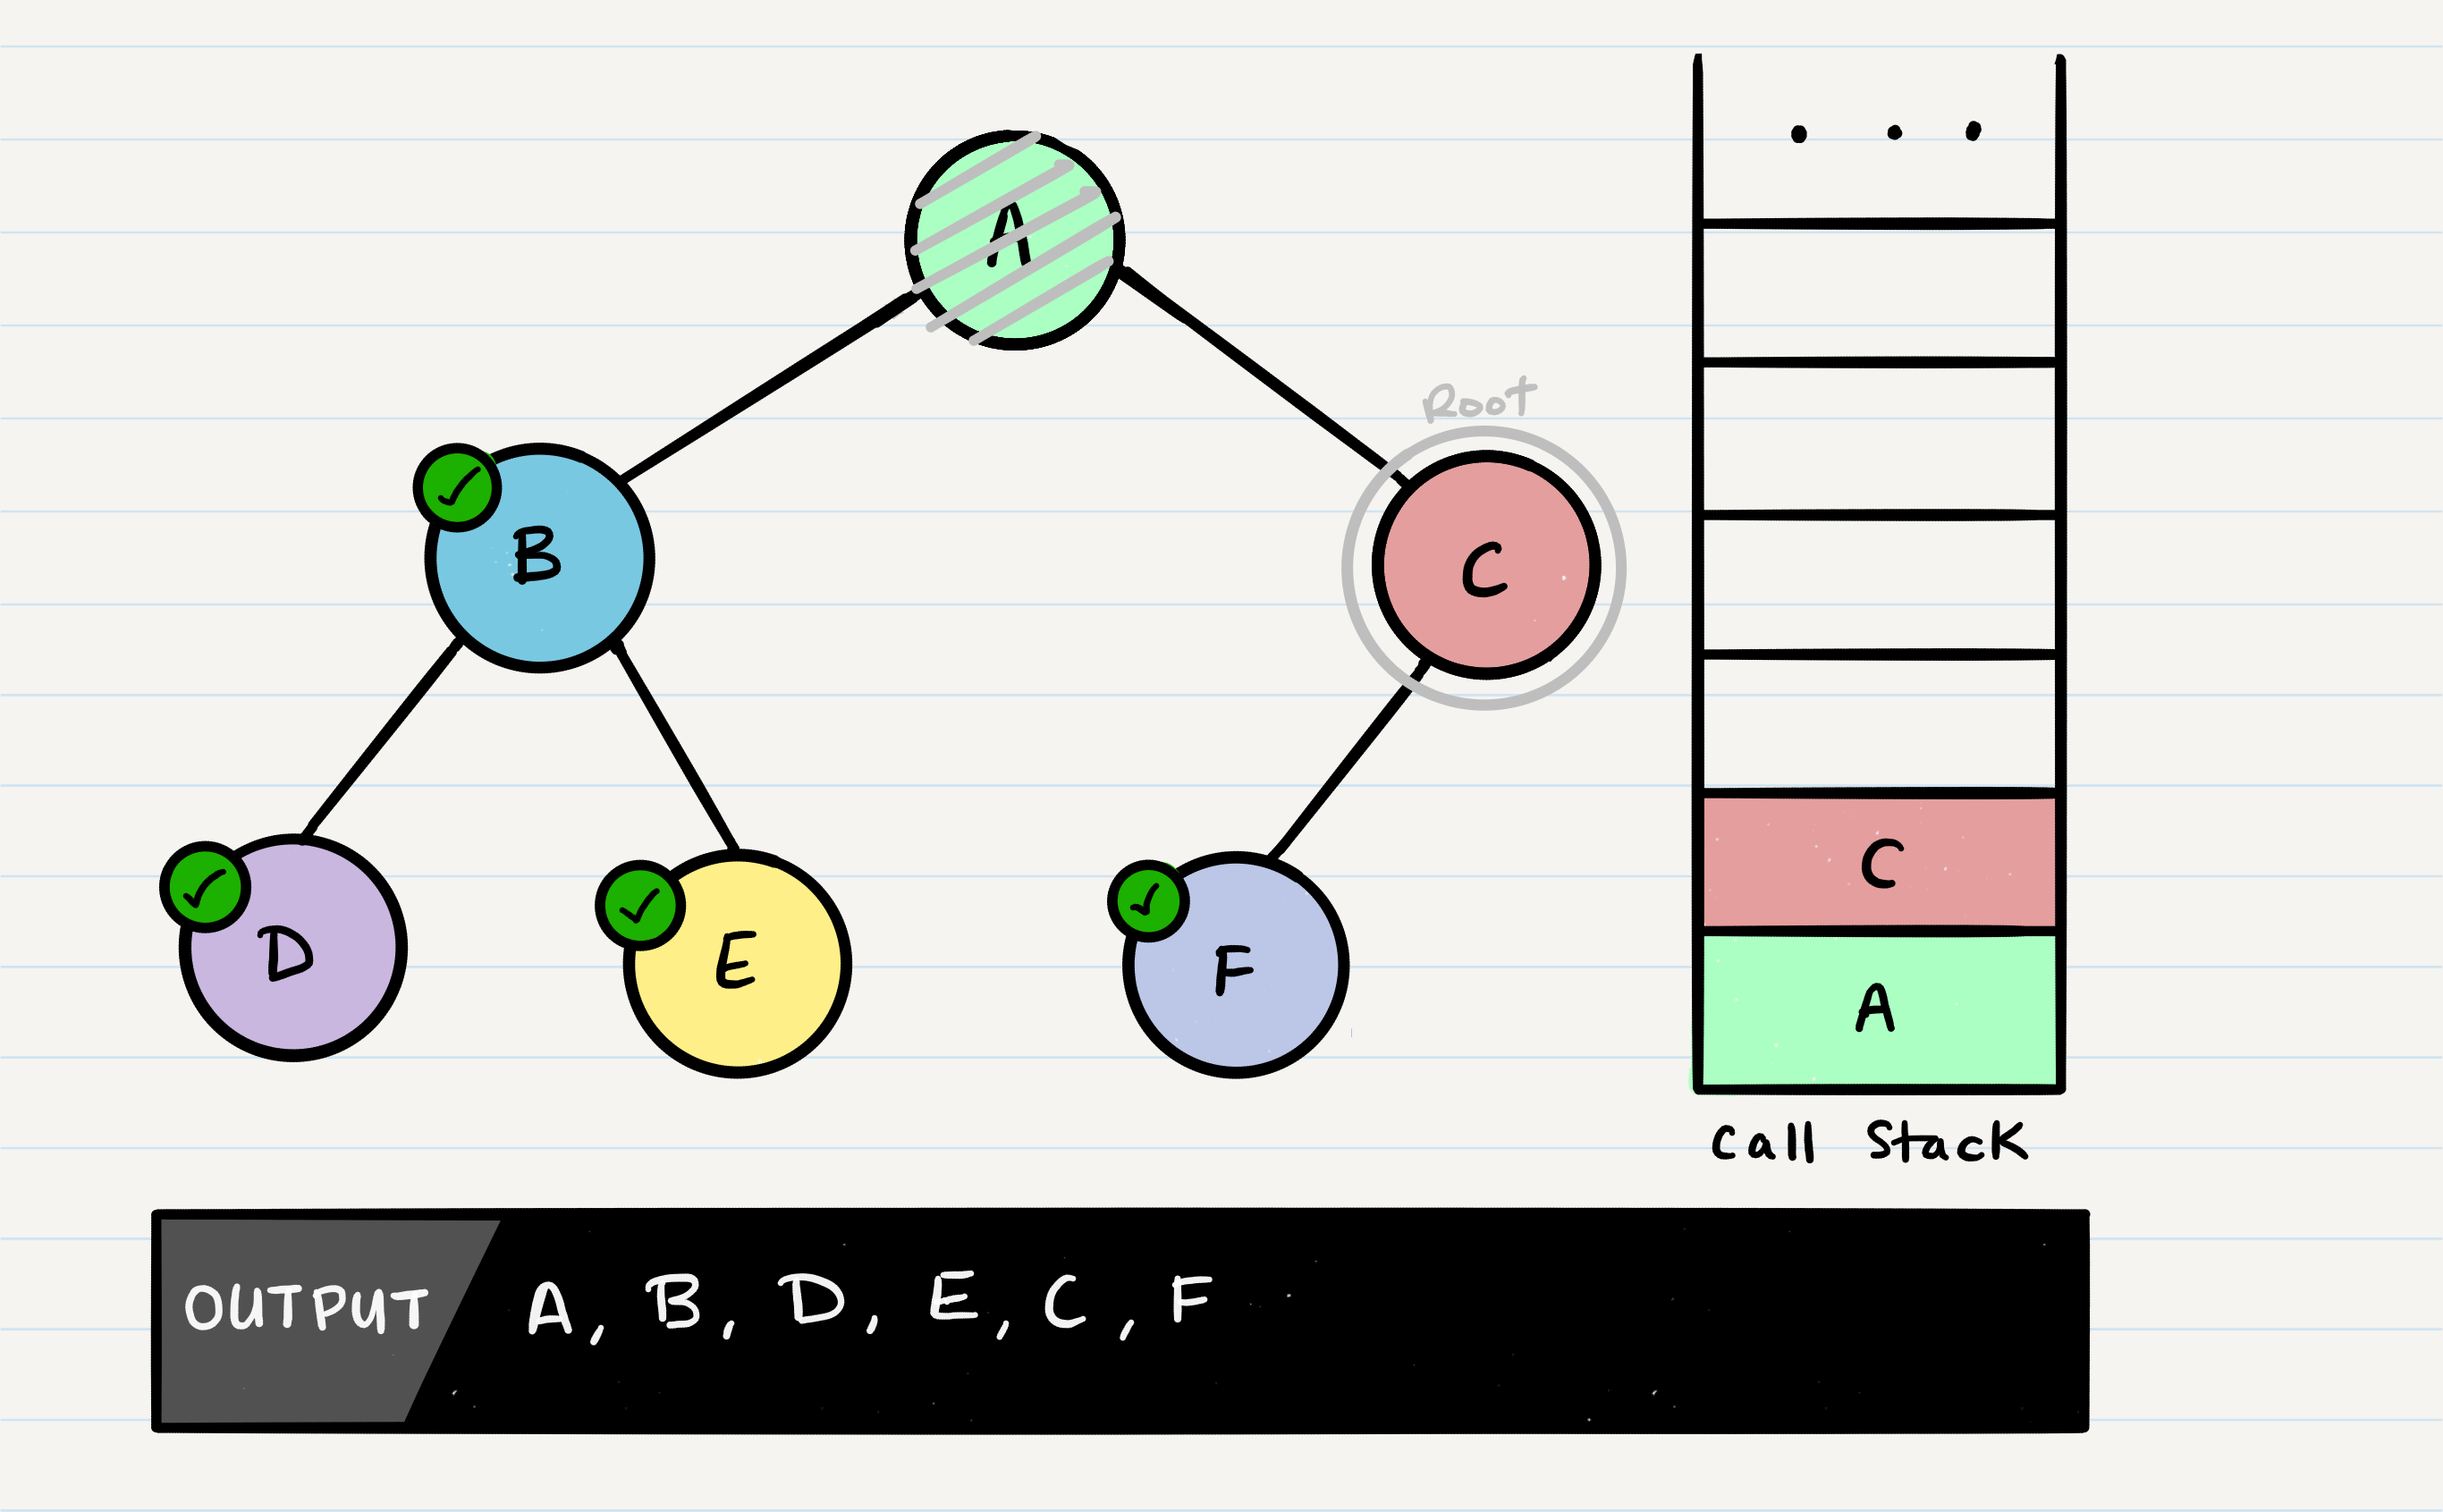 A
Root
B
C
D
E
F
. . .
C
A
Call Stack
OUTPUT
A, B, D, E, C, F